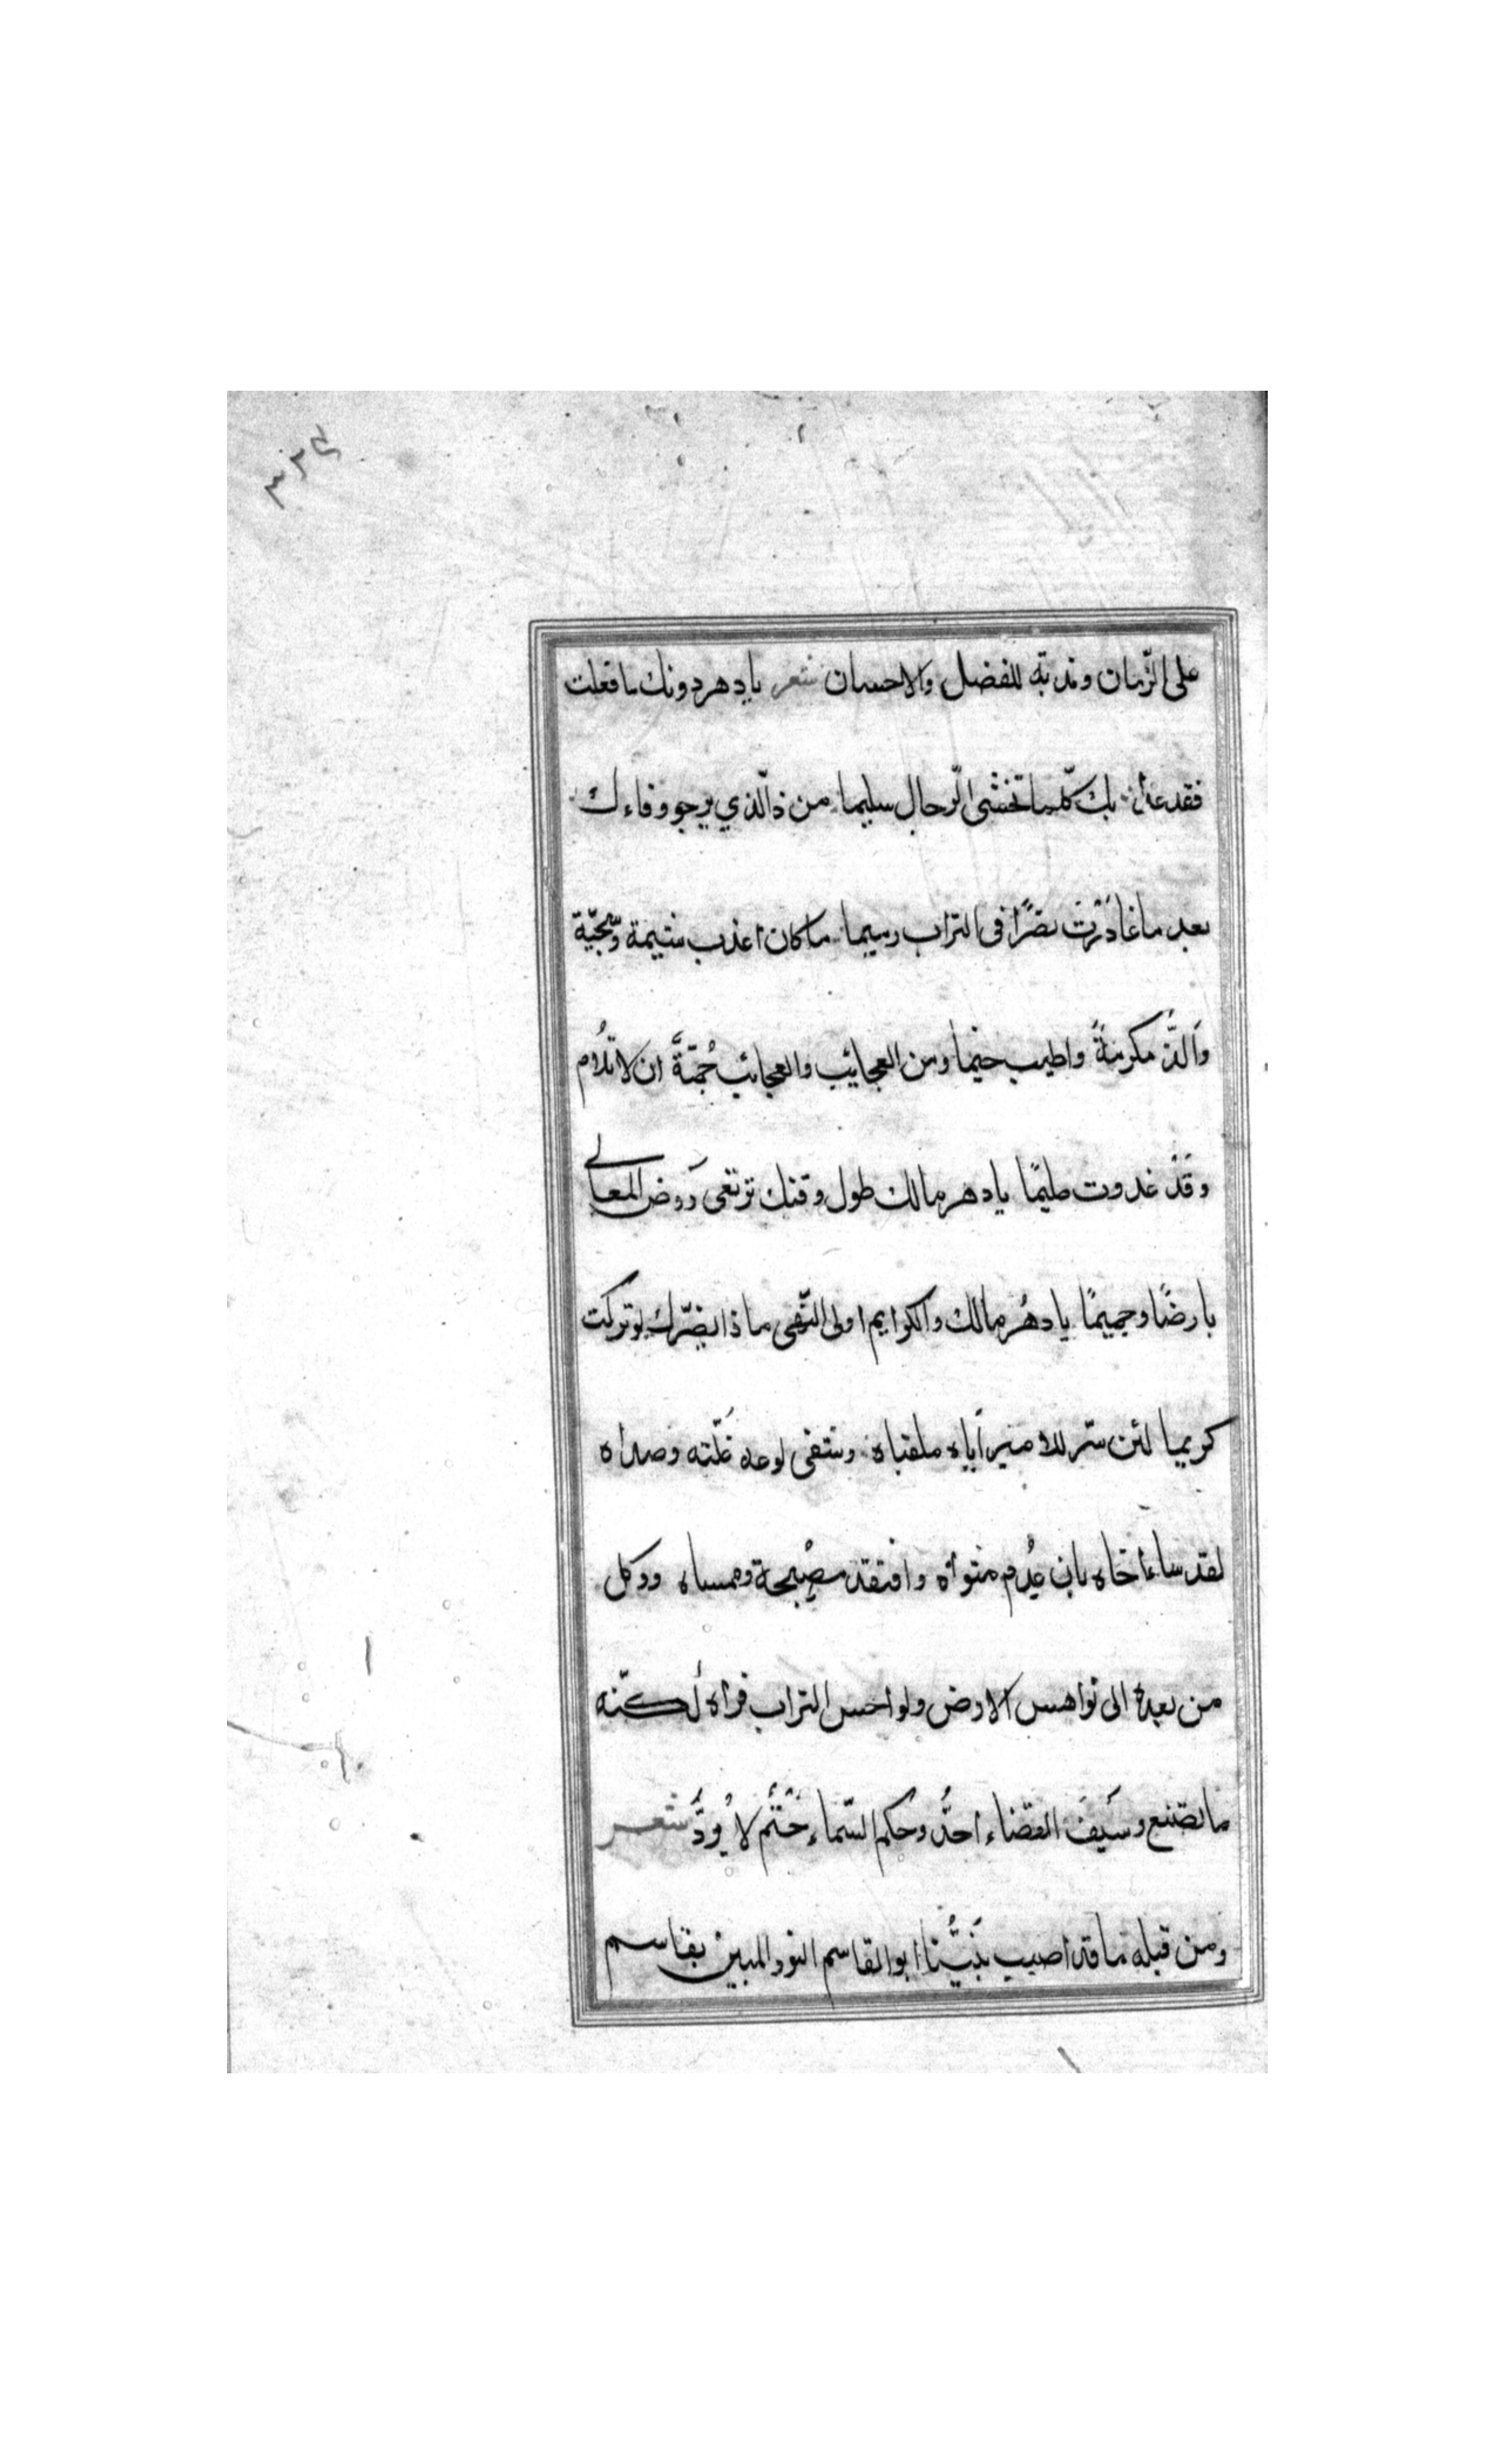 ٣٢٤
على الزّمان وندبته للفضل والاحسان شعر يا دهر دونك ما فعلت
فقد غدا بك كلّما تخشى الرّجال سليما من ذا الّذي يرجو وفاءك
بعد ما غادَرْتَ نصرًا في التراب رميما ما كان اعذب شيمة وسجيّة
وَالذّ مكرمةً واطيب خيما ومن العجايب والعجائب جُمّةَّ ان لا تُلام
وَقَدْ غدوت مليمًا يا دهر مالك طول وقتك ترتقى رَوض المعالي
بارضًا وجميمًا يا دهُر مالك والكرايم اولى النّهى ماذا يضرّك لو تركت
كريما لئن سرّ للامير اَباه ملقياه وشفى لوعة غُلّته وصداه
لقد ساء أخاه بان عُدم مثواه وافتقد مصْبحة وممساه وود كل
من بعده الى نواهس الارض ولو احس التراب فراه لكنّه
ما تصنع وسَيفَ القضاء احدُّ وحُكم السّماء حَتْم لا يُودُّ شعر
ومن قبله ما قد اصيب بنَبيُّنا ابو القاسم النور المبين بقاسم